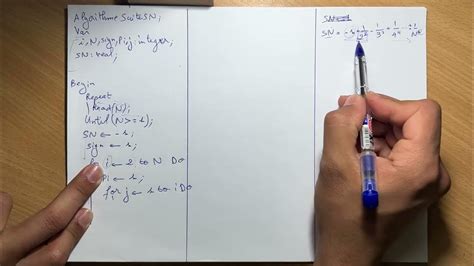 Algorithme SuiteSN;
Var
i, N, sign, Pi, j: integer;
SN: real;
Begin
Repeat
Read(N);
Until (N >= 1);
SN ← -1;
sign ← 1;
i ← 2 to N Do
Pi ← 1;
for j ← 1 to i Do
SN = -1 + 1/2² - 1/3³ + 1/4⁴